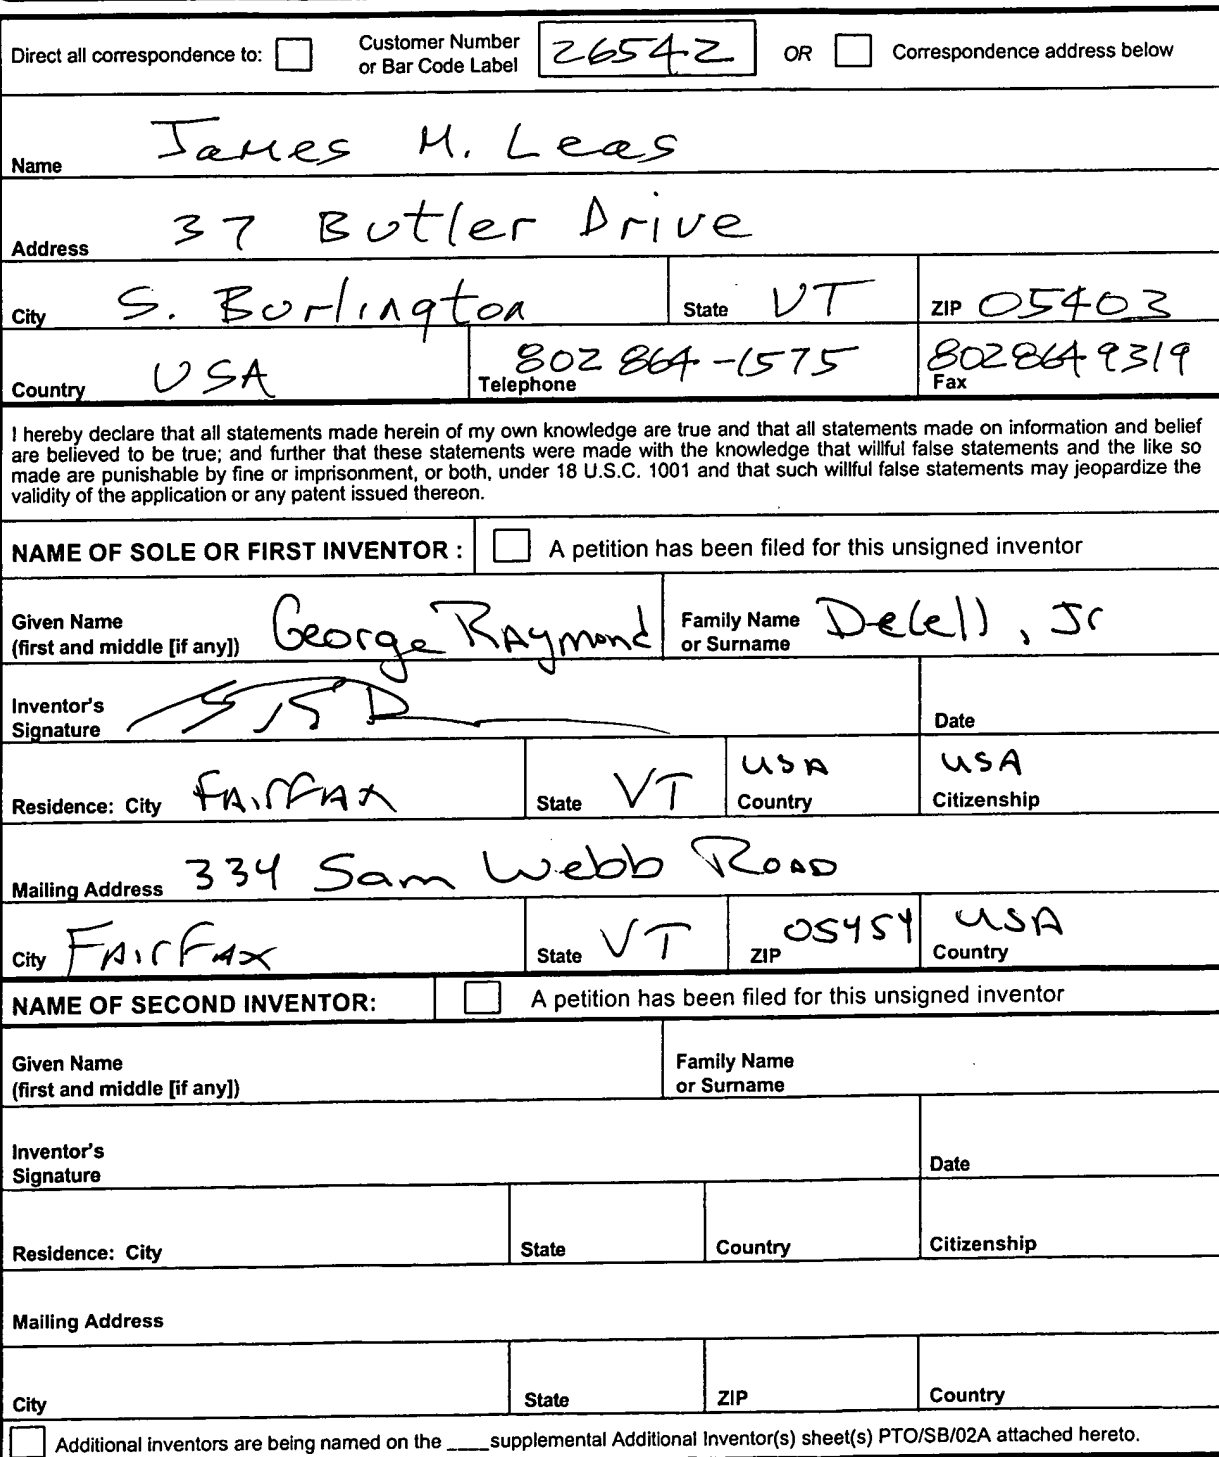 Direct all correspondence to: Customer Number or Bar Code Label 26542 OR Correspondence address below
Name James M. Leas
Address 37 Butler Drive
City S. Burlington State VT ZIP 05403
Country USA Telephone 802 864-1575 Fax 802 864 9319
I hereby declare that all statements made herein of my own knowledge are true and that all statements made on information and belief
are believed to be true; and further that these statements were made with the knowledge that willful false statements and the like so
made are punishable by fine or imprisonment, or both, under 18 U.S.C. 1001 and that such willful false statements may jeopardize the
validity of the application or any patent issued thereon.
NAME OF SOLE OR FIRST INVENTOR : A petition has been filed for this unsigned inventor
Given Name (first and middle [if any]) George Raymond Family Name or Surname Delell, Jr
Inventor's Signature Date
Residence: City FAirFAx State VT Country USA Citizenship USA
Mailing Address 334 Sam Webb Road
City FAirFax State VT ZIP 05454 Country USA
NAME OF SECOND INVENTOR: A petition has been filed for this unsigned inventor
Given Name (first and middle [if any]) Family Name or Surname
Inventor's Signature Date
Residence: City State Country Citizenship
Mailing Address
City State ZIP Country
Additional inventors are being named on the ____supplemental Additional Inventor(s) sheet(s) PTO/SB/02A attached hereto.